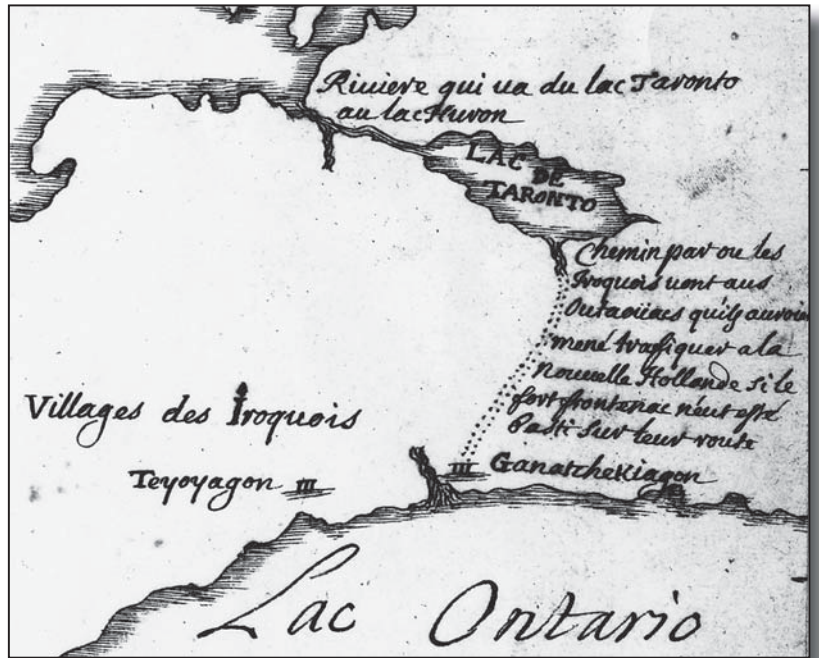 Riuiere qui ua du lac Taronto
au lac Huron
LAC DE
TARONTO
Chemin par ou les
Iroquois uont aus
Outaoüacs qu'ils auroien
mené traffiquer a la
Nouuelle Hollande si le
fort frontenac n'eut esté
basti sur leur route
Villages des Iroquois
Teyoyagon
Ganatchekiagon
Lac Ontario